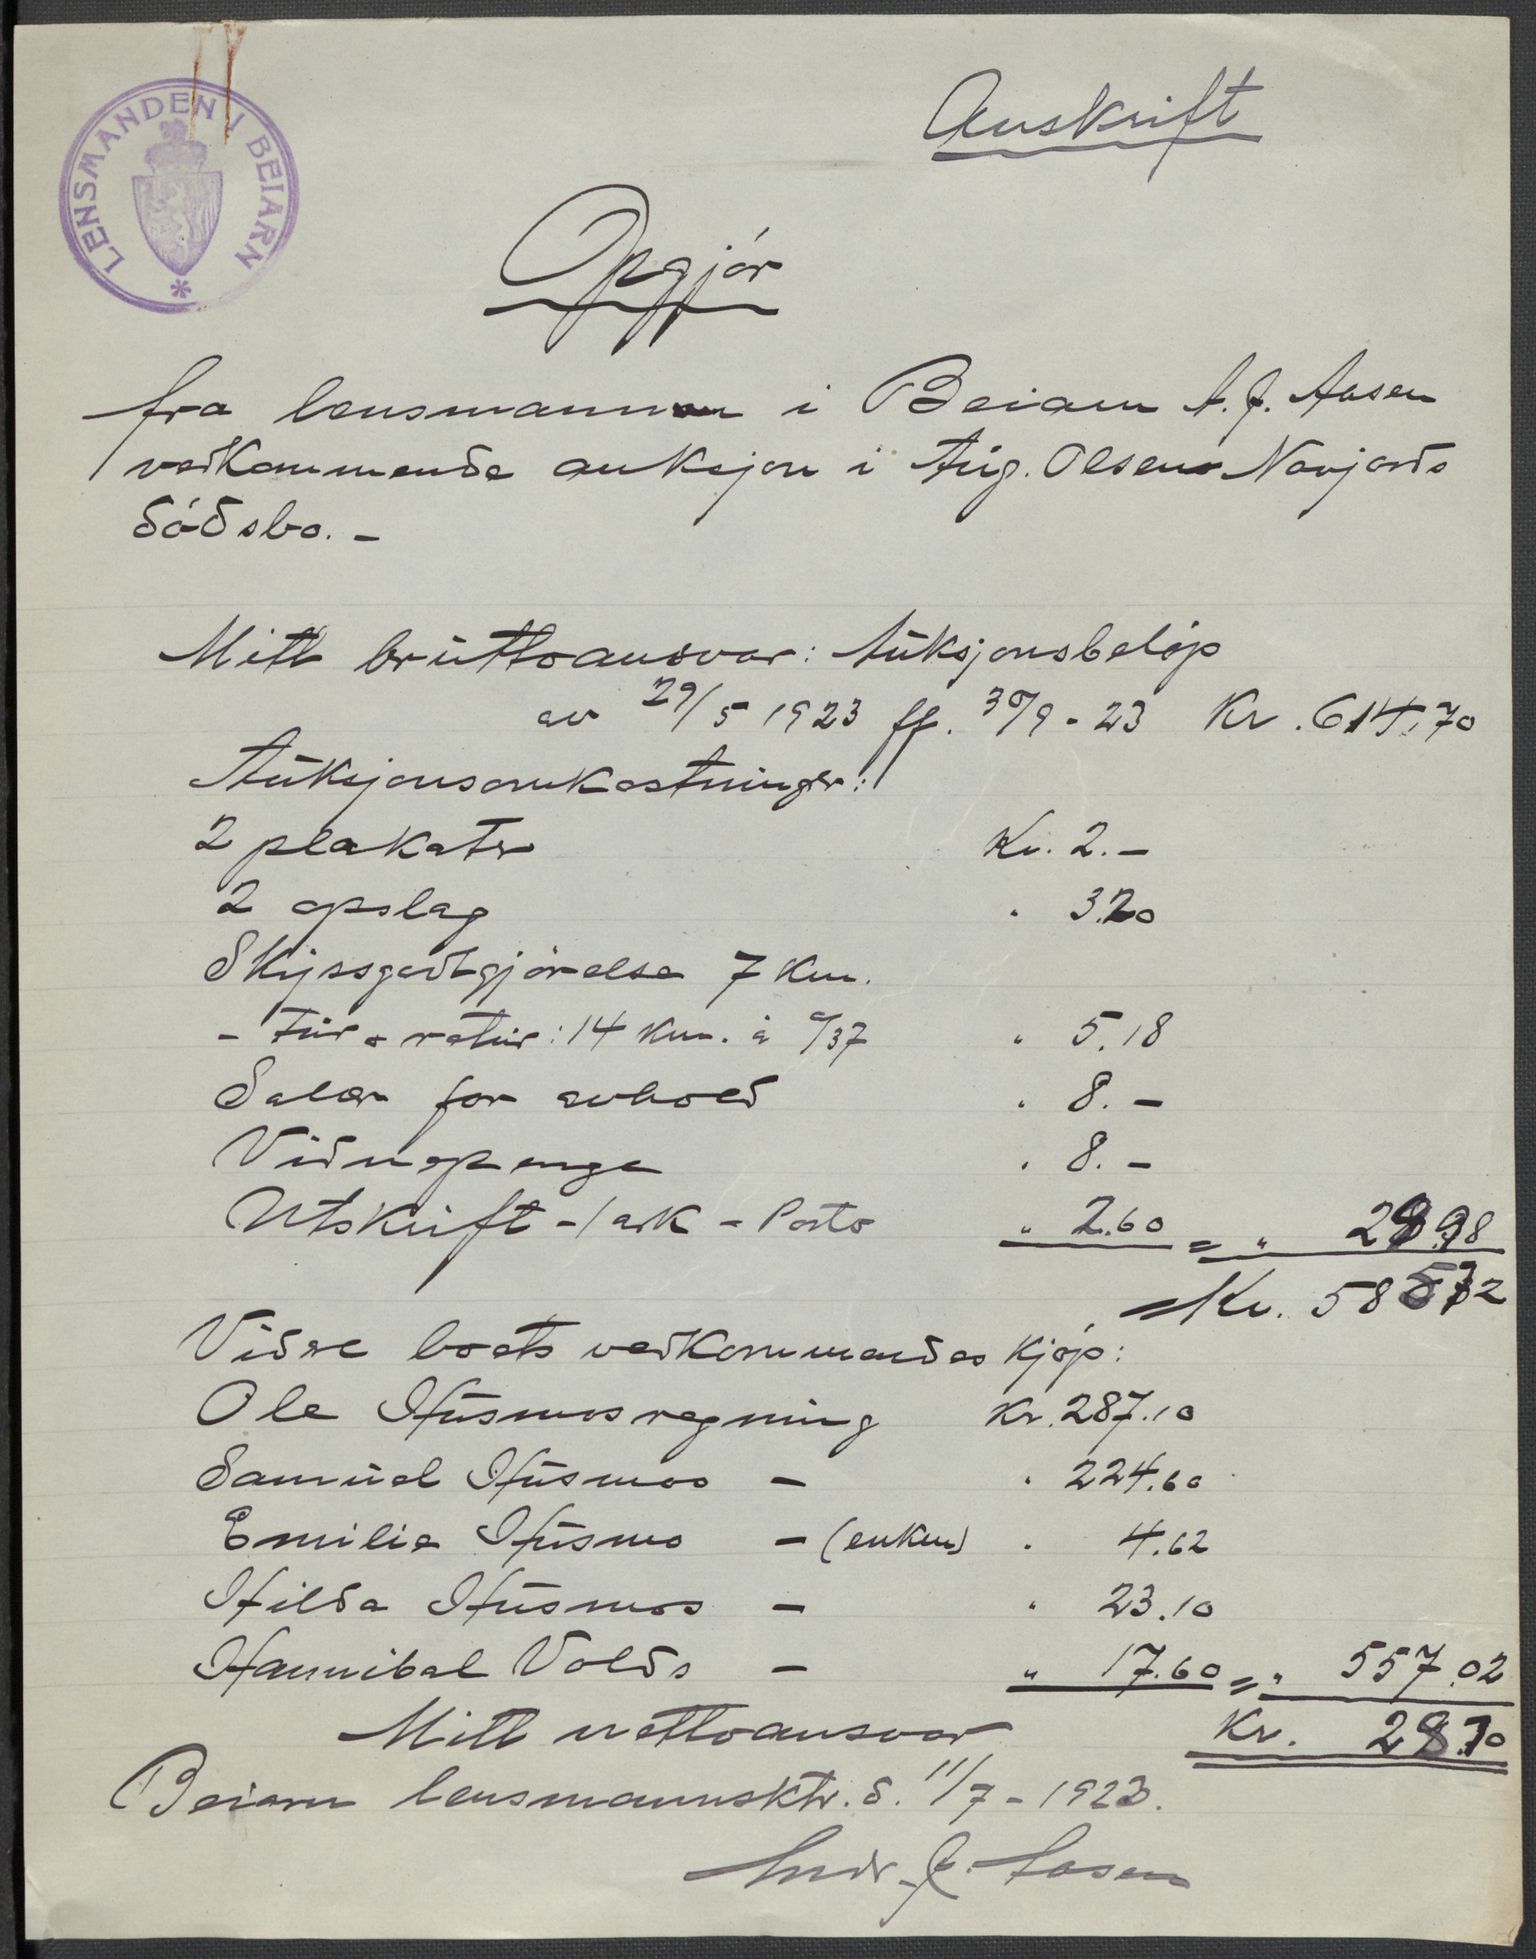 LENSMANDEN I BEIARN
Avskrift
Opgjór
fra lensmannen i Beiarn A. J. Aasen
vedkommende auksjon i Aug. Olsens Navjords
dódsbo. -
Mitt brúttoansvar: Aúksjonsbelóp
av 29/5 1923 ff. 30/9 - 23 Kr. 614.70
Aúksjonsomkostninger:
2 plakater Kr. 2.-
2 opslag " 3.20
Skyssgodtgjórelse 7 km.
- túr o retúr: 14 km. á o/37 " 5.18
Salær for avhold " 8.-
Vidnepenge " 8.-
Utskrift - 1 ark - Porto " 2.60 = " 28.98
Kr. 585.72
Vidre boets vedkommendes kjóp:
Ole Húsmos regning Kr. 287.10
Samúel Húsmos - " 224.60
Emilie Húsmo - (enken) " 4.62
Hilda Húsmos - " 23.10
Hannibal Volds - " 17.60 = " 557.02
Mitt nettoansvar Kr. 28.70
Beiarn lensmannsktr. d. 11/7 - 1923.
Andr. J. Aasen